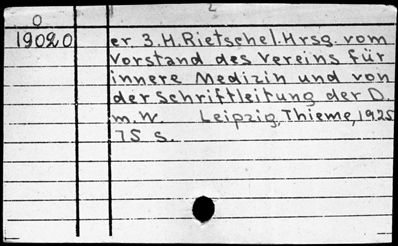 0 2
19020 er 3. H. Rietschel. Hrsg. vom
Vorstand des Vereins für
innere Medizin und von
der Schriftleitung der D.
m. W. Leipzig, Thieme, 1925
75 S.